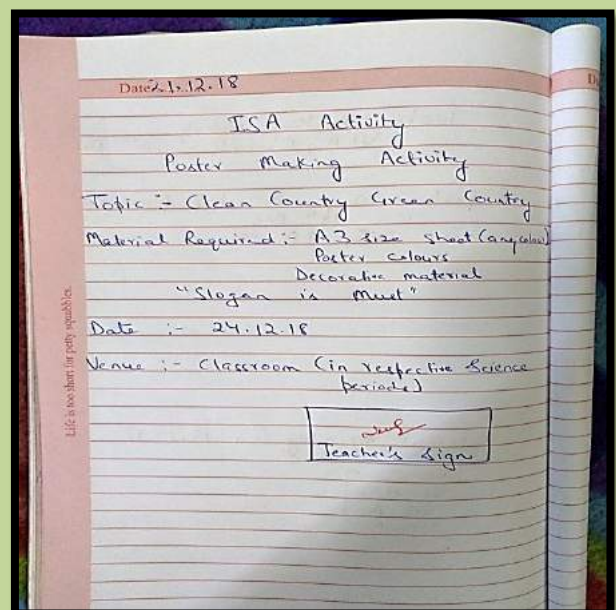 Date 21.12.18
ISA Activity
Poster Making Activity
Topic :- Clean Country Green Country
Material Required :- A3 size sheet (any colour)
Poster colours
Decorative material
"Slogan is Must"
Date :- 24.12.18
Venue :- Classroom (in respective Science
periods)
Teacher's Sign
Life is too short for petty squabbles.